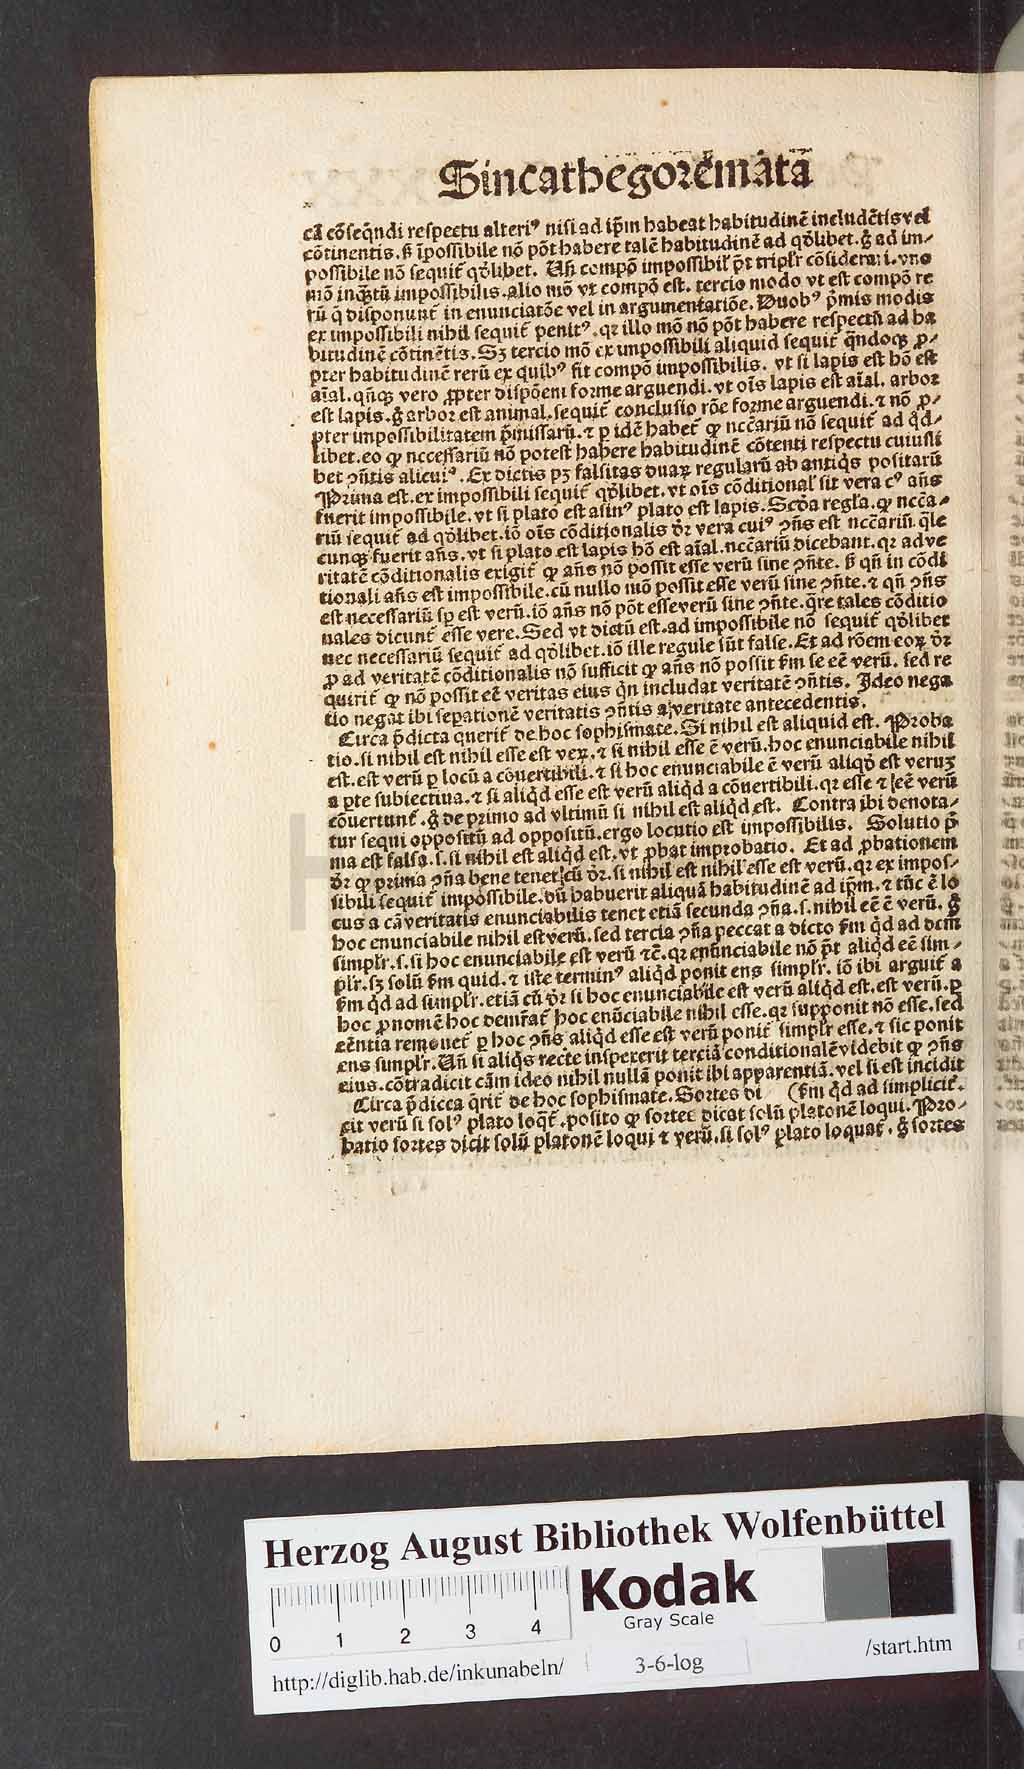 Sincathegorēmata
cā cōseq̄ndi respectu alteriꝰ nisi ad ip̄m habeat habitudinē includētis vel
cōtinentis. sꝫ īpossibile nō pōt habere talē habitudinē ad qd̄libet. g̊ ad im-
possibile nō sequit̄ qd̄libet. Uñ compō impossibil' p̄t tripl'r cōsiderari. vno
mō inqꝫtū impossibilis. alio mō vt compō est. tercio modo vt est compō re
rū q̄ disponunt̄ in enunciatōe vel in argumentatiōe. Duobꝰ p̄mis modis
ex impossibili nihil sequit̄ penitꝰ. qꝛ illo mō nō pōt habere respectū ad ha
bitudinē cōtinētis. Sꝫ tercio mō ex impossibili aliquid sequit̄ q̄ndoqꝫ ꝓ-
pter habitudinē rerū ex quibꝰ fit compō impossibilis. vt si lapis est hō est
aīal. qñqꝫ vero ꝓpter dispōem forme arguendi. vt oīs lapis est aīal. arbor
est lapis. g̊ arbor est animal. sequit̄ conclusio rōe forme arguendi. ⁊ nō ꝓ-
pter impossibilitatem p̄missarū. ⁊ ꝑ idē habet̄ ꝙ nccāriū nō sequit̄ ad qd̄-
libet. eo ꝙ necessariū nō potest habere habitudinē cōtenti respectu cuiusli
bet ꝯñtis alicuiꝰ. Ex dictis pꝫ falsitas duaꝝ regularū ab antiq̄s positarū
Prima est. ex impossibili sequit̄ qd̄libet. vt oīs cōditional' sit vera cꝰ añs
fuerit impossibile. vt si plato est asinꝰ plato est lapis. Scd̄a regl'a. ꝙ nccā-
riū sequit̄ ad qd̄libet. iō oīs cōditionalis dr̄ vera cuiꝰ ꝯñs est nccāriū q̄le
cunqꝫ fuerit añs. vt si plato est lapis hō est aīal. nccāriū dicebant. qꝛ ad ve
ritatē cōditionalis exigit̄ ꝙ añs nō possit esse verū sine ꝯñte. sꝫ qñ in cōdi
tionali añs est impossibile. cū nullo mō possit esse verū sine ꝯñte. ⁊ qñ ꝯñs
est necessariū sp̄ est verū. iō añs nō pōt esse verū sine ꝯñte. q̄re tales cōditio
nales dicunt̄ esse vere. Sed vt dictū est. ad impossibile nō sequit̄ qd̄libet
nec necessariū sequit̄ ad qd̄libet. iō ille regule sūt false. Et ad rōem eoꝝ dr̄
ꝙ ad veritatē cōditionalis nō sufficit ꝙ añs nō possit fm̄ se eē verū. sed re
quirit̄ ꝙ nō possit eē veritas eius q̄n includat veritatē ꝯñtis. Ideo nega
tio negat ibi sepationē veritatis ꝯñtis a veritate antecedentis.
Circa p̄dicta querit̄ de hoc sophismate. Si nihil est aliquid est. Proba
tio. si nihil est nihil esse est veꝝ. ⁊ si nihil esse ē verū. hoc enunciabile nihil
est. est verū ꝑ locū a cōuertibili. ⁊ si hoc enunciabile ē verū aliqd̄ est veruꝫ
a ꝑte subiectiua. ⁊ si aliqd̄ esse est verū aliqd̄ a cōuertibili. qꝛ esse ⁊ eē verū
cōuertunt̄. g̊ de primo ad vltimū si nihil est aliqd̄ est. Contra ibi denota-
tur sequi oppositū ad oppositū. ergo locutio est impossibilis. Solutio p̄
ma est falsa. s. si nihil est aliqd̄ est. vt ꝓbat improbatio. Et ad ꝓbationem
dr̄ ꝙ prima ꝯña bene tenet cū dr̄. si nihil est nihil esse est verū. qꝛ ex impos-
sibili sequit̄ impossibile. dū habuerit aliquā habitudinē ad ip̄m. ⁊ tūc ē lo
cus a cā veritatis enunciabilis tenet etiā secunda ꝯña. s. nihil eē ē verū. g̊
hoc enunciabile nihil est verū. sed tercia ꝯña peccat a dicto fm̄ qd̄ ad dcm̄
simpl'r. s. si hoc enunciabile est verū ⁊c̄. qꝛ enunciabile nō p̄t aliqd̄ eē sim-
pl'r. sꝫ solū fm̄ quid. ⁊ iste terminꝰ aliqd̄ ponit ens simpl'r. iō ibi arguit̄ a
fm̄ qd̄ ad simpl'r. etiā cū dr̄ si hoc enunciabile est verū aliqd̄ est. est verū. ꝑ
hoc ꝓnomē hoc demr̄at̄ hoc enūciabile nihil esse. qꝛ supponit nō esse. sed
eētia remouet̄ ꝑ hoc ꝯñs aliqd̄ esse est verū ponit̄ simpl'r esse. ⁊ sic ponit
ens simpl'r. Uñ si aliqs recte inspexerit terciā conditionalē videbit ꝙ ꝯñs
eius. cōtradicit cām ideo nihil nullā ponit ibi apparentiā. vel si est incidit
Circa p̄dicca q̄rit̄ de hoc sophismate. Sortes di (fm̄ qd̄ ad simplicit̄.
cit verū si solꝰ plato loqt̄. posito ꝙ sortes dicat solū platonē loqui. Pro-
batio sortes dicit solū platonē loqui ⁊ verū. si solꝰ plato loquat̄. g̊ sortes
Herzog August Bibliothek Wolfenbüttel
0 1 2 3 4
Kodak
Gray Scale
http://diglib.hab.de/inkunabeln/
3-6-log
/start.htm